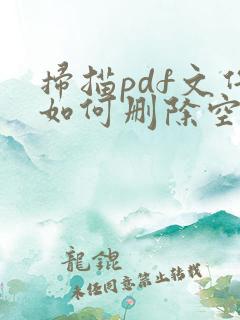 扫描pdf文件
如何删除空
龍錕
未经同意禁止转载